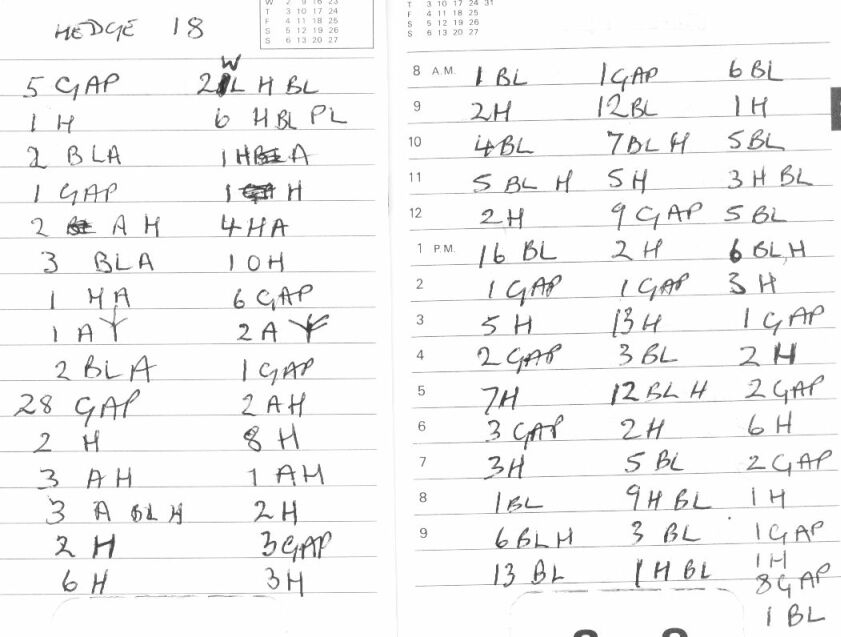 HEDGE 18
T 3 10 17 24
F 4 11 18 25
S 5 12 19 26
S 6 13 20 27
5 GAP
1 H
2 BLA
1 GAP
2 A H
3 BLA
1 HA
1 A Y
2 BLA
28 GAP
2 H
3 AH
3 A BL H
2 H
6 H
W
2 L H BL
6 H BL PL
1 H A
1 H
4 HA
10 H
6 GAP
2 A
1 GAP
2 AH
8 H
1 AH
2 H
3 GAP
3 H
T 3 10 17 24 31
F 4 11 18 25
S 5 12 19 26
S 6 13 20 27
8 A.M.
9
10
11
12
1 P.M.
2
3
4
5
6
7
8
9
1 BL
2H
4BL
5 BL H
2H
16 BL
1 GAP
5 H
2 GAP
7H
3 GAP
3H
1BL
6 BLH
13 BL
1 GAP
12BL
7BL H
5H
9 GAP
2 H
1 GAP
13H
3 BL
12BL H
2H
5 BL
9H BL
3 BL
1 H BL
6 BL
1 H
5BL
3 H BL
5 BL
6 BL H
3 H
1 GAP
2 H
2 GAP
6 H
2 GAP
1 H
1 GAP
1H
8GAP
1 BL